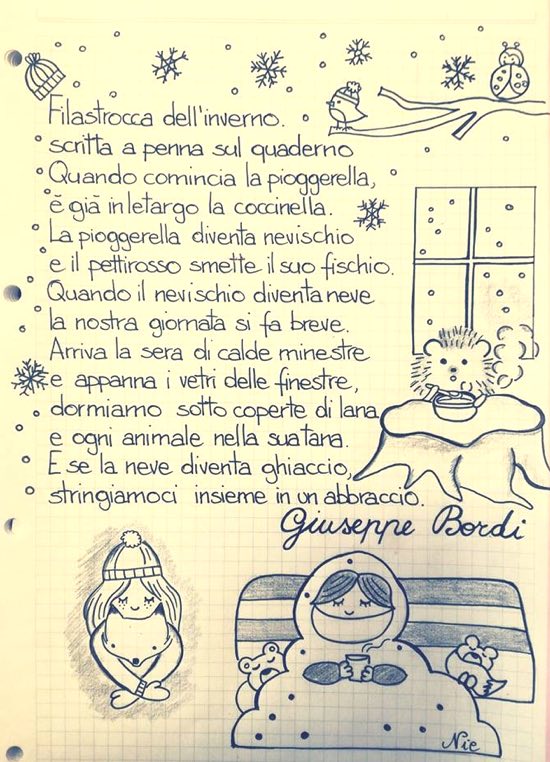 Filastrocca dell'inverno.
scritta a penna sul quaderno
Quando comincia la pioggerella,
è già in letargo la coccinella.
La pioggerella diventa nevischio
e il pettirosso smette il suo fischio.
Quando il nevischio diventa neve
la nostra giornata si fa breve.
Arriva la sera di calde minestre
e appanna i vetri delle finestre,
dormiamo sotto coperte di lana
e ogni animale nella sua tana.
E se la neve diventa ghiaccio,
stringiamoci insieme in un abbraccio.
Giuseppe Bordi
Nie